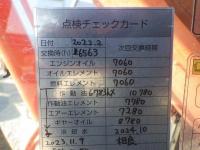 点検チェックカード
日付 2022.2 次回交換時間
交換時(h) 6563
エンジンオイル 7060
オイルエレメント 7060
燃料エレメント 7060
作動油 6783hx 10780
作動油エレメント 7780
エアーエレメント 7280
ギヤーオイル 8780
冷却水 2024.10
2023.11.9